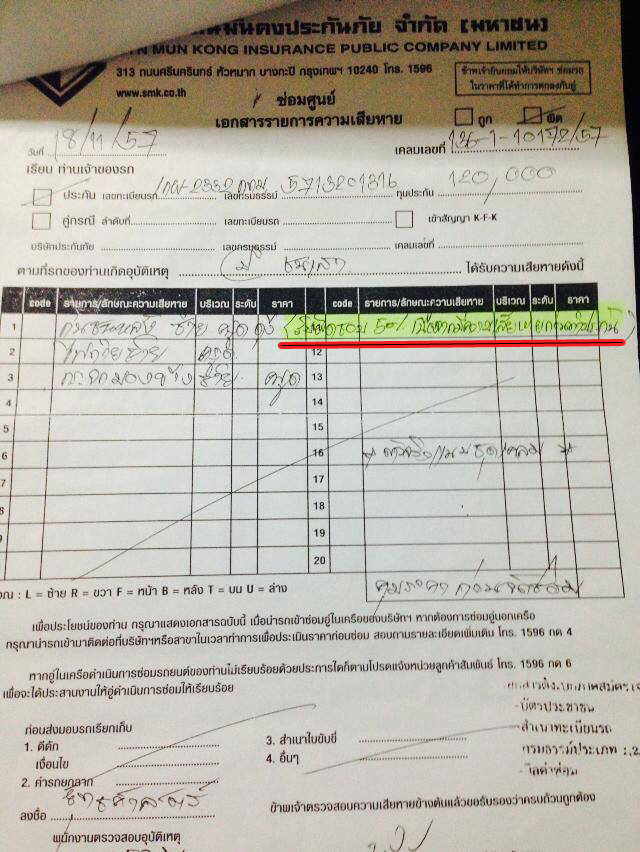 ประกันภัย จำกัด (มหาชน)
MUN KONG INSURANCE PUBLIC COMPANY LIMITED
313 ถนนศรีนครินทร์ หัวหมาก บางกะปิ กรุงเทพฯ 10240 โทร. 1596
www.smk.co.th
ข้าพเจ้ายินยอมให้บริษัทฯ ซ่อมรถ
ในราคาที่ได้ทำการตกลงกับอู่
ซ่อมศูนย์
เอกสารรายการความเสียหาย
ถูก ผิด
วันที่ 18/11/57 เคลมเลขที่
เรียน ท่านเจ้าของรถ
ประกัน เลขทะเบียนรถ 2332 กทม เลขกรมธรรม์ ทุนประกัน 120,000
คู่กรณี ลำดับที่ เลขทะเบียนรถ เข้าสัญญา K-F-K
บริษัทประกันภัย เลขกรมธรรม์ เคลมเลขที่
ตามที่รถของท่านเกิดอุบัติเหตุ ได้รับความเสียหายดังนี้
code รายการ/ลักษณะความเสียหาย บริเวณ ระดับ ราคา code รายการ/ลักษณะความเสียหาย บริเวณ ระดับ ราคา
1 กันชนหลัง ซ้าย ครูด
2 ไฟท้ายซ้าย ครูด 12
3 กระจกมองข้าง ซ้าย ครูด 13
4 14
5
6 16
7 17
18
19
20
คุมราคาก่อนจัดซ่อม
: L = ซ้าย R = ขวา F = หน้า B = หลัง T = บน U = ล่าง
เพื่อประโยชน์ของท่าน กรุณาแสดงเอกสารฉบับนี้ เมื่อนำรถเข้าซ่อมอู่ในเครือของบริษัทฯ หากต้องการซ่อมอู่นอกเครือ
กรุณานำรถเข้ามาติดต่อที่บริษัทฯหรือสาขาในเวลาทำการเพื่อประเมินราคาก่อนซ่อม สอบถามรายละเอียดเพิ่มเติม โทร. 1596 กด 4
หากอู่ในเครือดำเนินการซ่อมรถยนต์ของท่านไม่เรียบร้อยด้วยประการใดก็ตามโปรดแจ้งหน่วยลูกค้าสัมพันธ์ โทร. 1596 กด 6
เพื่อจะได้ประสานงานให้อู่ดำเนินการซ่อมให้เรียบร้อย
-บัตรประชาชน
-สำเนาทะเบียนรถ
กรมธรรม์ประเภท
ก่อนส่งมอบรถเรียกเก็บ
1. ดีดัก 3. สำเนาใบขับขี่
เงื่อนไข 4. อื่นๆ
2. ค่ารถยกลาก
ลงชื่อ ข้าพเจ้าตรวจสอบความเสียหายข้างต้นแล้วขอรับรองว่าครบถ้วนถูกต้อง
พนักงานตรวจสอบอุบัติเหตุ